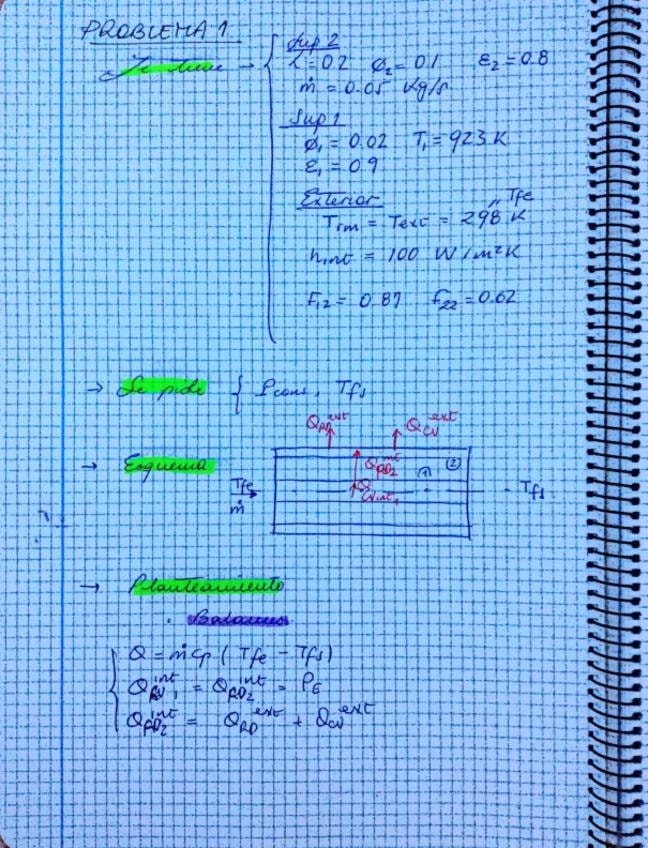 PROBLEMA 1
Se tiene → Sup 2
L = 0.2 φ₂ = 0.1 ε₂ = 0.8
ṁ = 0.05 Kg/s
Sup 1
φ₁ = 0.02 T₁ = 923 K
ε₁ = 0.9
Exterior
" Tfe
Trm = Text = 298 K
hint = 100 W/m²K
F12 = 0.87 F22 = 0.62
→ Se pide { Pcons, Tfs
Q_RD^ext Q_CV^ext
→ Esquema
Q_RD2^int (1) (2)
Tfe
ṁ
Q_CV int 1
Tfs
→ Planteamiento
. Balances
Q = ṁ cp (Tfe - Tfs)
Q_CV1^int = Q_RD2^int = PE
Q_RD2^int = Q_RD^ext + Q_CV^ext